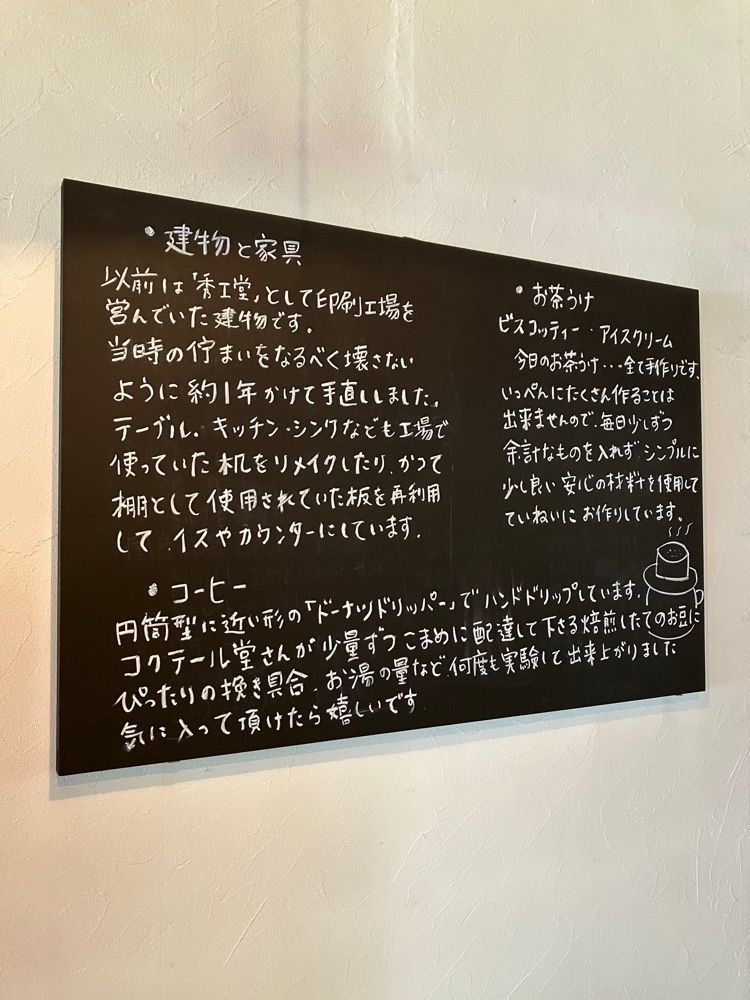 ・建物と家具
以前は「秀工堂」として印刷工場を
営んでいた建物です。
当時の佇まいをなるべく壊さない
ように約1年かけて手直ししました。
テーブル。キッチン・シンクなども工場で
使っていた机をリメイクしたり、かつて
棚として使用されていた板を再利用
して、イスやカウンターにしています。
・お茶うけ
ビスコッティー・アイスクリーム
今日のお茶うけ・・・全て手作りです、
いっぺんにたくさん作ることは
出来ませんので、毎日少しずつ
余計なものを入れず シンプルに
少し良い 安心の材料を使用して
ていねいに お作りしています。
・コーヒー
円筒型に近い形の「ドーナツドリッパー」で ハンドドリップしています。
コクテール堂さんが少量ずつこまめに配達して下さる焙煎したてのお豆に
ぴったりの挽き具合、お湯の量など、何度も実験して出来上がりました
気に入って頂けたら嬉しいです